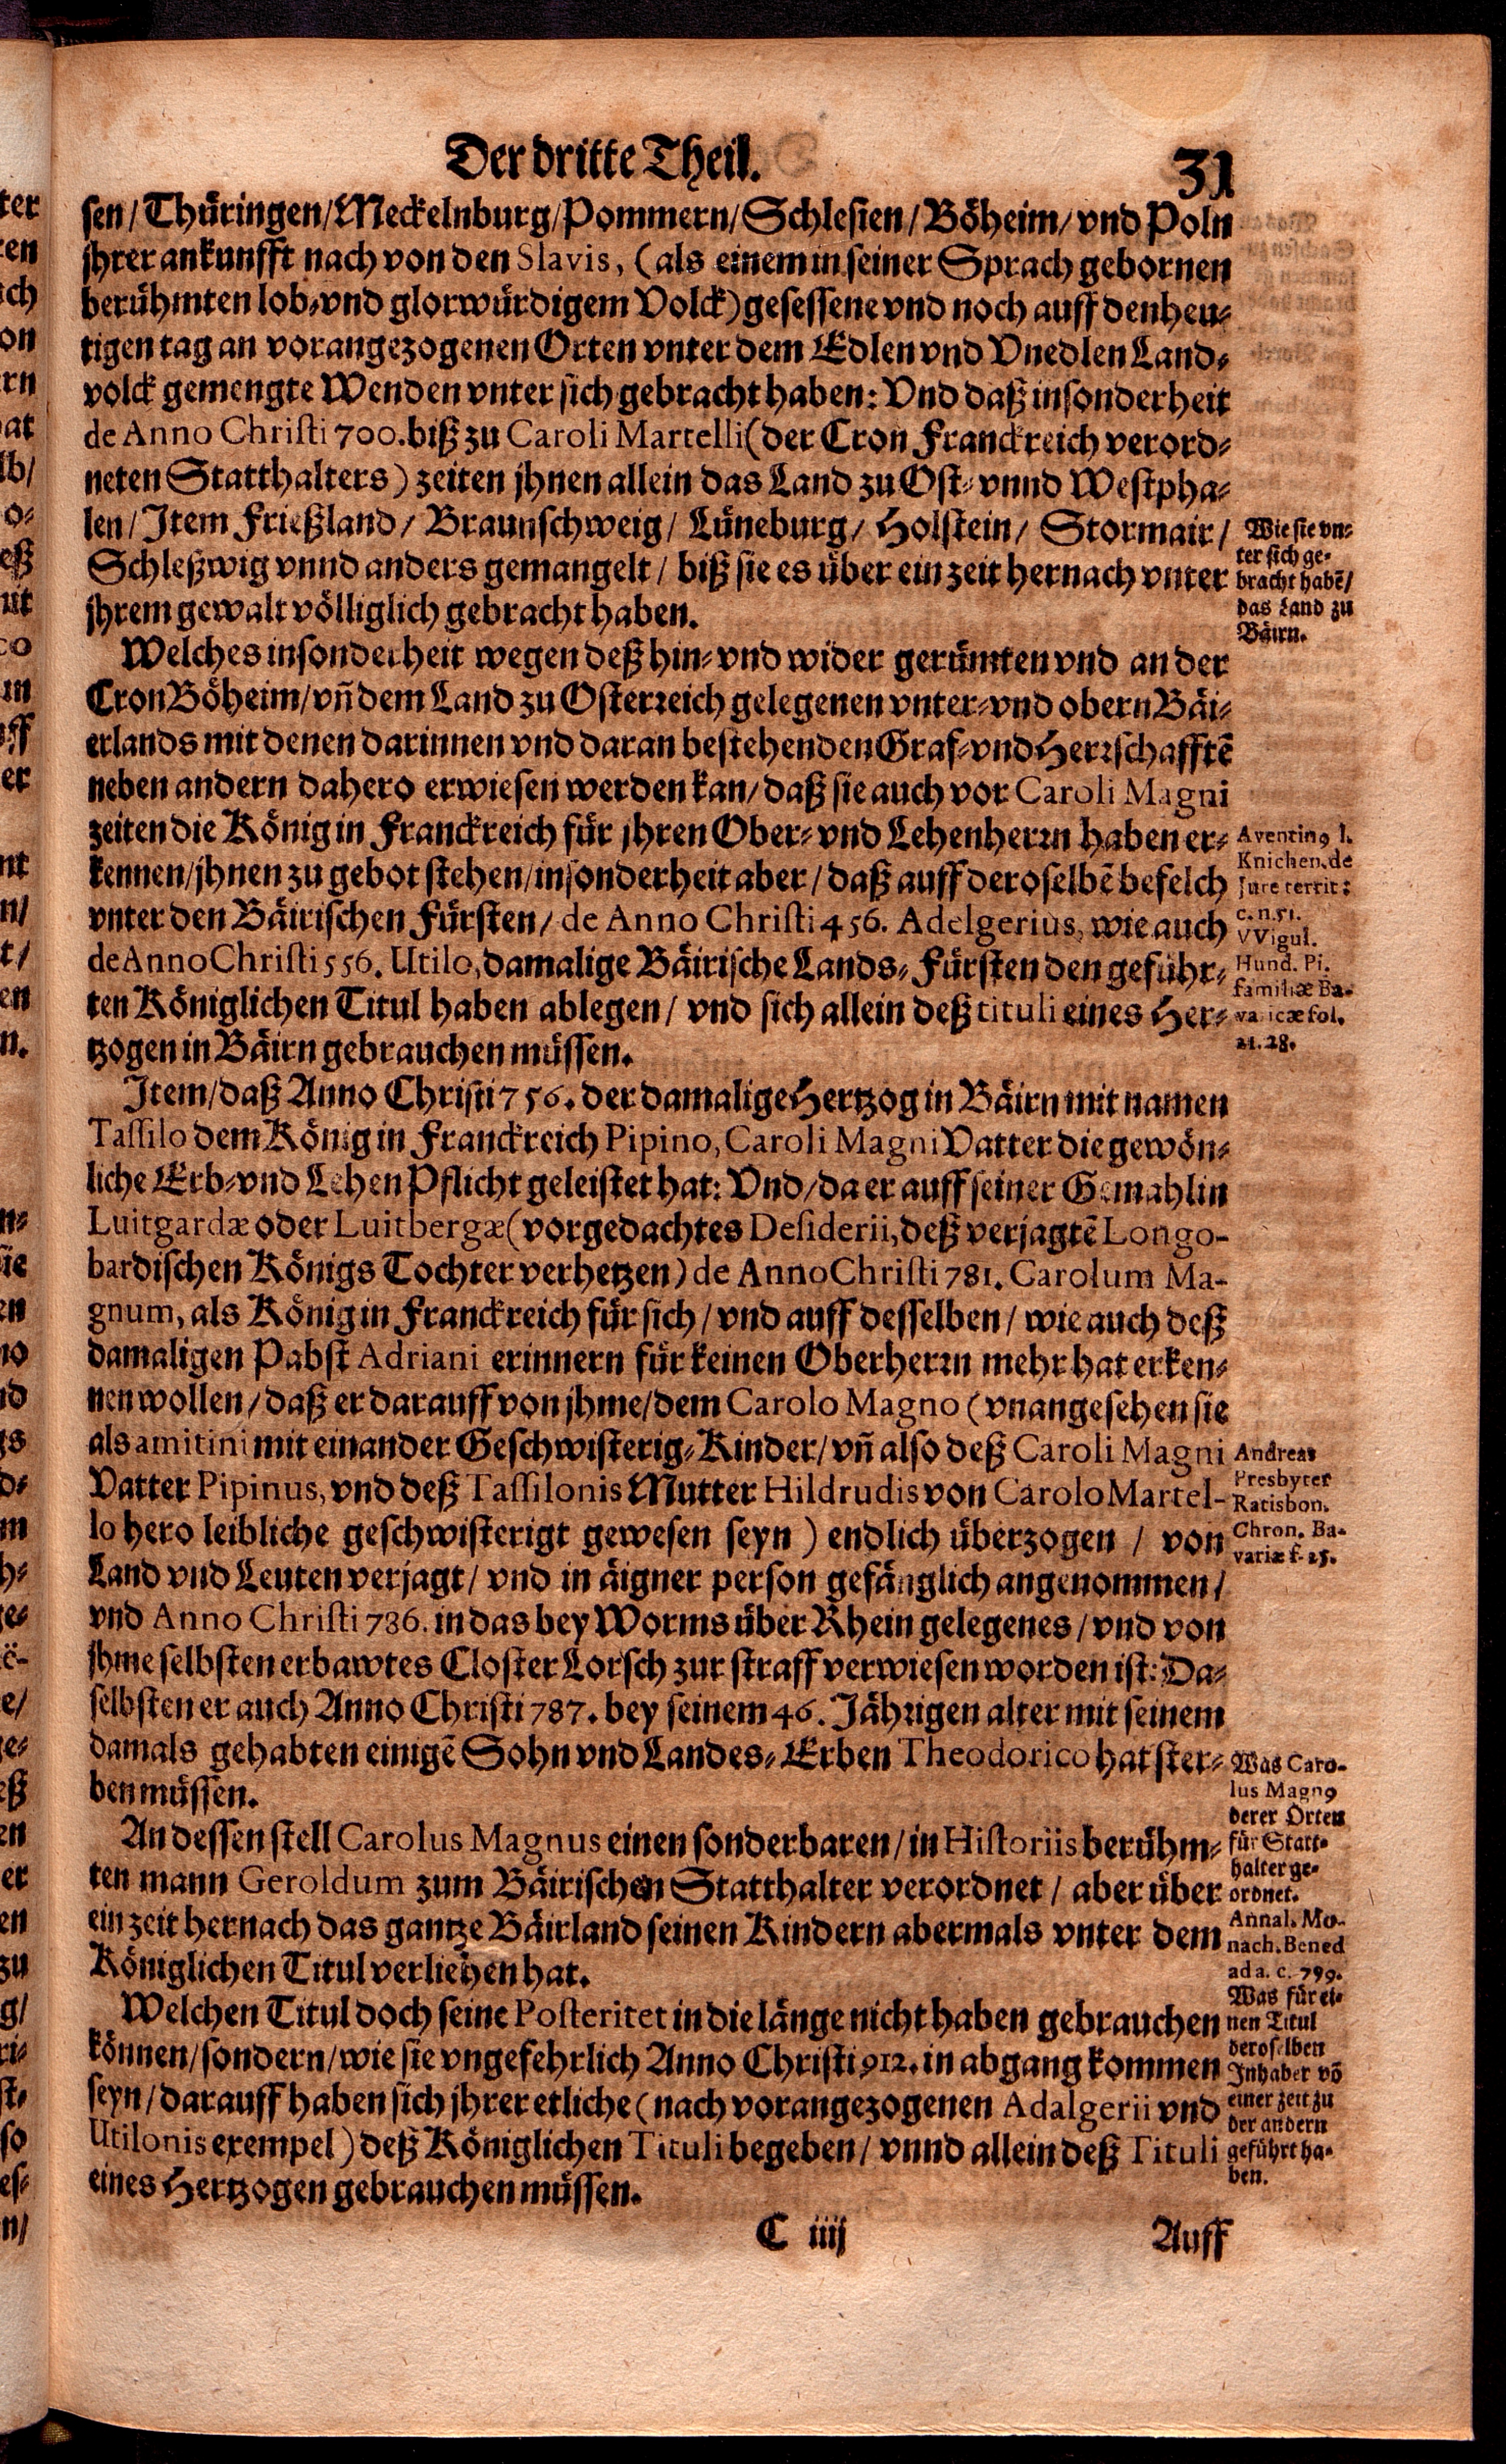 Der dritte Theil. 31
sen/ Thüringen/ Meckelnburg/ Pommern/ Schlesien/ Böheim/ vnd Poln
jhrer ankunfft nach von den Slavis, (als einem in seiner Sprach gebornen
berühmten lob- vnd glorwürdigem Volck) gesessene vnd noch auff den heu-
tigen tag an vorangezogenen Orten vnter dem Edlen vnd Vnedlen Land-
volck gemengte Wenden vnter sich gebracht haben: Vnd daß insonderheit
de Anno Christi 700. biß zu Caroli Martelli (der Cron Franckreich verord-
neten Statthalters) zeiten jhnen allein das Land zu Ost- vnnd Westpha-
len/ Item Frießland/ Braunschweig/ Lüneburg/ Holstein/ Stormair/
Schleßwig vnnd anders gemangelt/ biß sie es über ein zeit hernach vnter
jhrem gewalt völliglich gebracht haben.
Wie sie vn-
ter sich ge-
bracht habē/
das Land zu
Bäirn.
Welches insonderheit wegen deß hin- vnd wider gerümten vnd an der
Cron Böheim/ vñ dem Land zu Osterreich gelegenen vnter- vnd obern Bäi-
erlands mit denen darinnen vnd daran bestehenden Graf- vnd Herrschafftē
neben andern dahero erwiesen werden kan/ daß sie auch vor Caroli Magni
zeiten die König in Franckreich für jhren Ober- vnd Lehenherrn haben er-
kennen/ jhnen zu gebot stehen/ insonderheit aber/ daß auff deroselbē befelch
vnter den Bäirischen Fürsten/ de Anno Christi 456. Adelgerius, wie auch
de Anno Christi 556. Utilo, damalige Bäirische Lands-Fürsten den geführ-
ten Königlichen Titul haben ablegen/ vnd sich allein deß tituli eines Her-
tzogen in Bäirn gebrauchen müssen.
Aventinꝰ l.
Knichen. de
Jure territ:
c. n. 51.
VVigul.
Hund. Pi.
familiæ Ba-
varicæ fol.
21. 28.
Item/ daß Anno Christi 756. der damalige Hertzog in Bäirn mit namen
Tassilo dem König in Franckreich Pipino, Caroli Magni Vatter die gewön-
liche Erb- vnd Lehen Pflicht geleistet hat: Vnd/ da er auff seiner Gemahlin
Luitgardæ oder Luitbergæ (vorgedachtes Desiderii, deß verjagtē Longo-
bardischen Königs Tochter verhetzen) de Anno Christi 781. Carolum Ma-
gnum, als König in Franckreich für sich/ vnd auff desselben/ wie auch deß
damaligen Pabst Adriani erinnern für keinen Oberherrn mehr hat erken-
nen wollen/ daß er darauff von jhme/ dem Carolo Magno (vnangesehen sie
als amitini mit einander Geschwisterig-Kinder/ vñ also deß Caroli Magni
Vatter Pipinus, vnd deß Tassilonis Mutter Hildrudis von Carolo Martel-
lo hero leibliche geschwisterigt gewesen seyn) endlich überzogen/ von
Land vnd Leuten verjagt/ vnd in äigner person gefänglich angenommen/
vnd Anno Christi 786. in das bey Worms über Rhein gelegenes/ vnd von
jhme selbsten erbawtes Closter Lorsch zur straff verwiesen worden ist: Da-
selbsten er auch Anno Christi 787. bey seinem 46. Jährigen alter mit seinem
damals gehabten einigē Sohn vnd Landes-Erben Theodorico hat ster-
ben müssen.
Andreas
Presbyter
Ratisbon.
Chron. Ba-
variæ f. 25.
An dessen stell Carolus Magnus einen sonderbaren/ in Historiis berühm-
ten mann Geroldum zum Bäirischen Statthalter verordnet/ aber über
ein zeit hernach das gantze Bäirland seinen Kindern abermals vnter dem
Königlichen Titul verliehen hat.
Was Caro-
lus Magnꝰ
derer Orten
für Statt-
halter ge-
ordnet.
Annal. Mo-
nach. Bened
ad a. c. 799.
Welchen Titul doch seine Posteritet in die länge nicht haben gebrauchen
können/ sondern/ wie sie vngefehrlich Anno Christi 912. in abgang kommen
seyn/ darauff haben sich jhrer etliche (nach vorangezogenen Adalgerii vnd
Utilonis exempel) deß Königlichen Tituli begeben/ vnnd allein deß Tituli
eines Hertzogen gebrauchen müssen.
Was für ei-
nen Titul
deroselben
Inhaber vō
einer zeit zu
der andern
geführt ha-
ben.
C iiij Auff